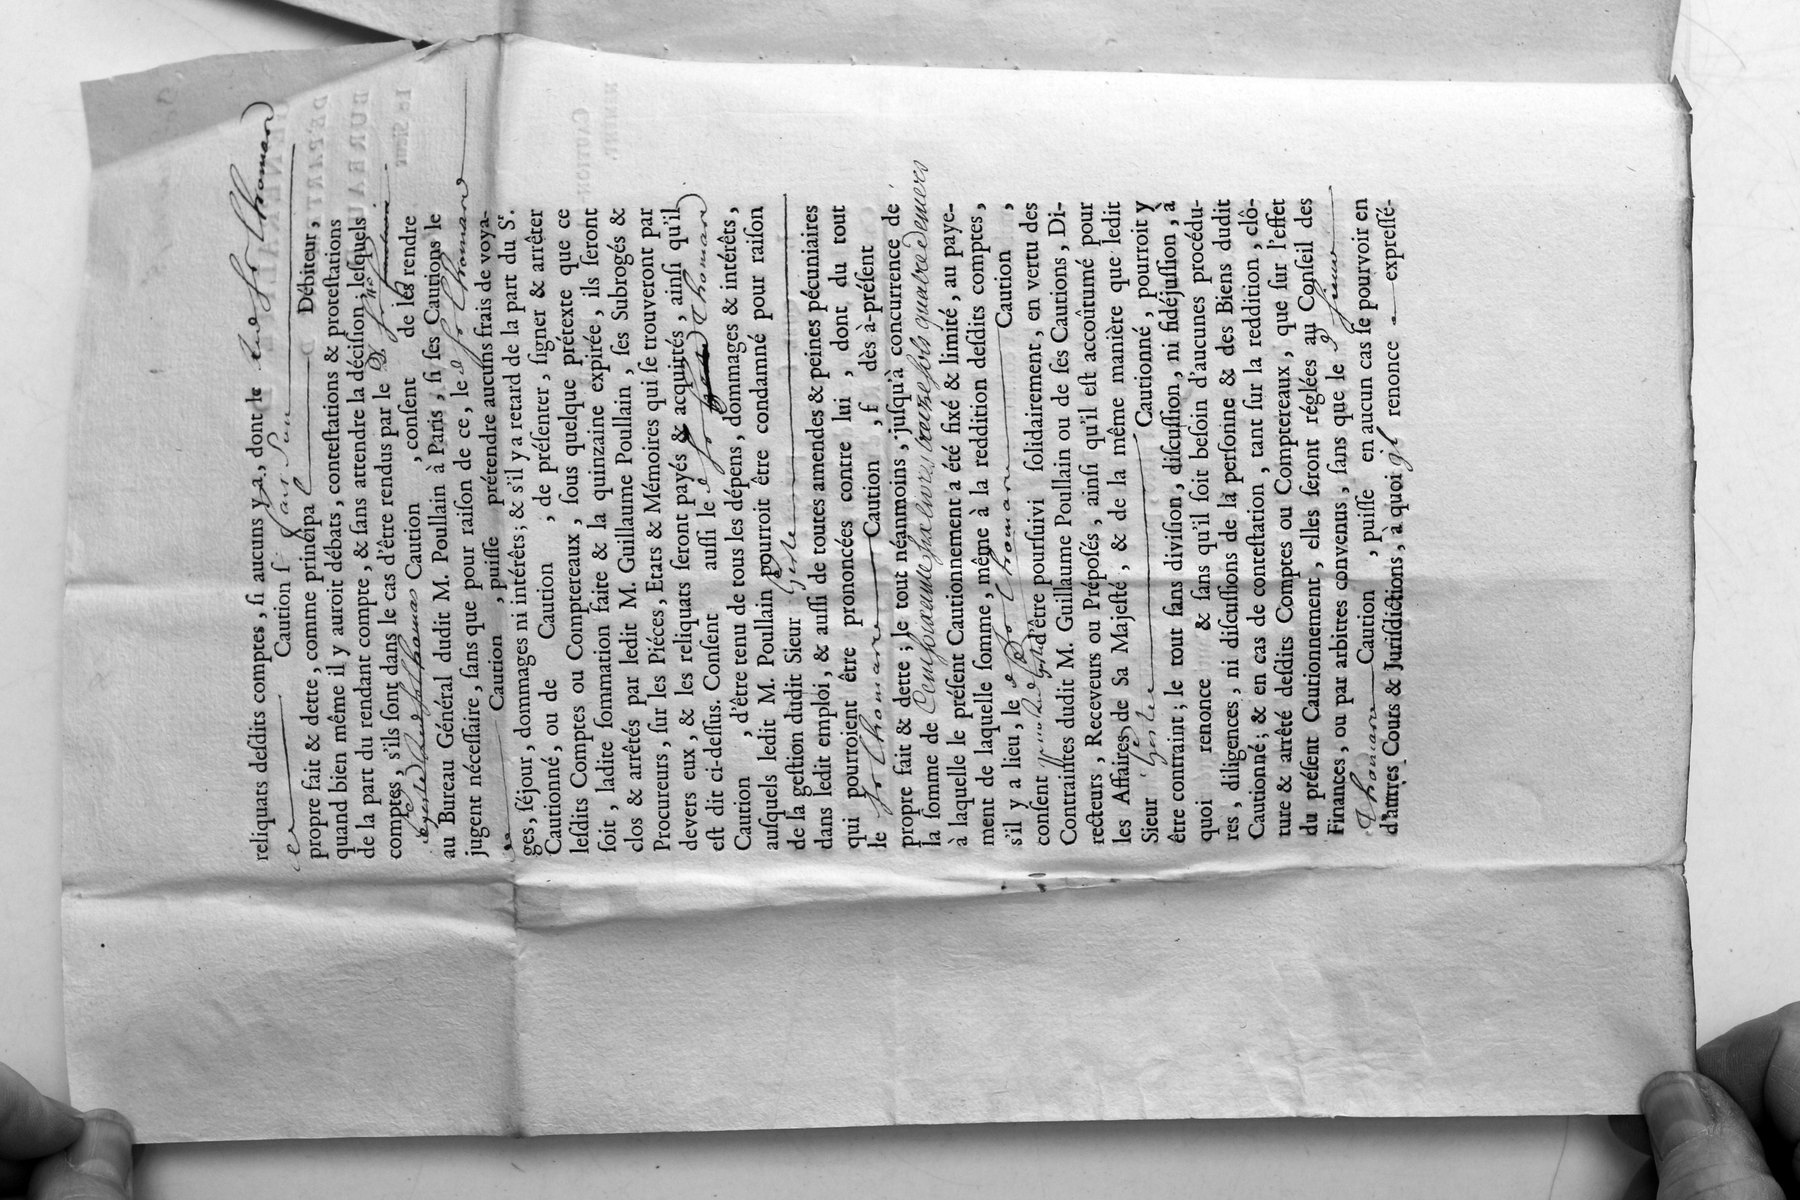 reliquats deſdits comptes, ſi aucuns y a, dont le
Caution ſ
propre fait & dette, comme principa Débiteur,
quand bien même il y auroit débats, conteſtations & proteſtations
de la part du rendant compte, & ſans attendre la déciſion; leſquels
comptes, s'ils ſont dans le cas d'être rendus par le
Caution, conſent de les rendre
au Bureau Général dudit M. Poullain à Paris, ſi ſes Cautions le
jugent néceſſaire, ſans que pour raiſon de ce, le Sr thomand
Caution, puiſſe prétendre aucuns frais de voya-
ges, ſéjour, dommages ni intérêts; & s'il y a retard de la part du Sr.
Cautionné, ou de Caution, de préſenter, ſigner & arrêter
leſdits Comptes ou Comptereaux, ſous quelque prétexte que ce
ſoit, ladite ſommation faite & la quinzaine expirée, ils ſeront
clos & arrêtés par ledit M. Guillaume Poullain, ſes Subrogés &
Procureurs, ſur les Piéces, Etats & Mémoires qui ſe trouveront par
devers eux, & les reliquats ſeront payés & acquittés, ainſi qu'il
eſt dit ci-deſſus. Conſent auſſi le Sr thomand
Caution, d'être tenu de tous les dépens, dommages & intérêts,
auſquels ledit M. Poullain pourroit être condamné pour raiſon
de la geſtion dudit Sieur
dans ledit emploi, & auſſi de toutes amendes & peines pécuniaires
qui pourroient être prononcées contre lui, dont du tout
le Sr thomand Caution, ſ dès à-préſent
propre fait & dette; le tout néanmoins, juſqu'à concurrence de
la ſomme de
à laquelle le préſent Cautionnement a été fixé & limité, au paye-
ment de laquelle ſomme, même à la reddition deſdits comptes,
s'il y a lieu, le Sr thomand Caution,
conſent d'être pourſuivi ſolidairement, en vertu des
Contraintes dudit M. Guillaume Poullain ou de ſes Cautions, Di-
recteurs, Receveurs ou Prépoſés, ainſi qu'il eſt accoûtumé pour
les Affaires de Sa Majeſté, & de la même manière que ledit
Sieur Cautionné, pourroit y
être contraint; le tout ſans diviſion, diſcuſſion, ni fidéjuſſion, à
quoi renonce & ſans qu'il ſoit beſoin d'aucunes procédu-
res, diligences, ni diſcuſſions de la perſonne & des Biens dudit
Cautionné; & en cas de conteſtation, tant ſur la reddition, clô-
ture & arrêté deſdits Comptes ou Comptereaux, que ſur l'effet
du préſent Cautionnement, elles ſeront réglées au Conſeil des
Finances, ou par arbitres convenus, ſans que le
thomand Caution, puiſſe en aucun cas ſe pourvoir en
d'autres Cours & Juriſdictions, à quoi renonce expreſſé-